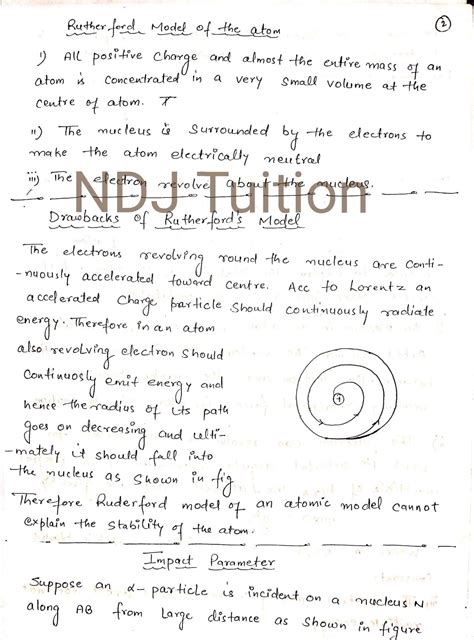 Rutherford Model of the atom
2
i) All positive charge and almost the entire mass of an
atom is concentrated in a very small volume at the
centre of atom.
ii) The nucleus is surrounded by the electrons to
make the atom electrically neutral
iii) The electron revolve about the nucleus.
NDJ Tuition
Drawbacks of Rutherford's Model
The electrons revolving round the nucleus are conti-
-nuously accelerated toward centre. Acc to Lorentz an
accelerated charge particle should continuously radiate
energy. Therefore in an atom
also revolving electron should
continuosly emit energy and
hence the radius of its path
goes on decreasing and ulti-
-mately it should fall into
the nucleus as shown in fig
+
Therefore Ruderford model of an atomic model cannot
explain the stability of the atom.
Impact Parameter
Suppose an α-particle is incident on a nucleus N
along AB from large distance as shown in figure